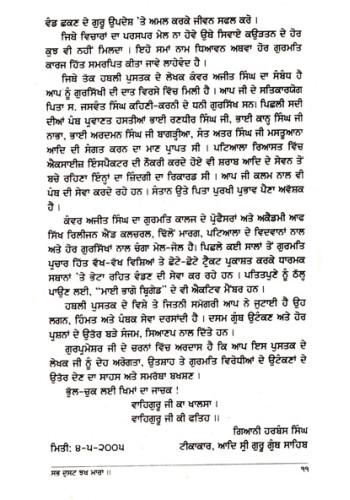 ਵੰਡ ਛਕਣ ਦੇ ਗੁਰੂ ਉਪਦੇਸ਼ 'ਤੇ ਅਮਲ ਕਰਕੇ ਜੀਵਨ ਸਫਲ ਕਰੋ ।
ਜਿਥੇ ਵਿਚਾਰਾਂ ਦਾ ਪਰਸਪਰ ਮੇਲ ਨਾ ਹੋਵੇ ਉਥੇ ਸਿਵਾਏ ਕਉੜਤਨ ਦੇ ਹੋਰ
ਕੁਝ ਵੀ ਨਹੀਂ ਮਿਲਦਾ । ਇਹੋ ਸਮਾਂ ਨਾਮ ਧਿਆਵਨ ਅਥਵਾ ਹੋਰ ਗੁਰਮਤਿ
ਕਾਰਜ ਹਿੱਤ ਸਮਰਪਿਤ ਕੀਤਾ ਜਾਵੇ ਲਾਹੇਵੰਦ ਹੈ ।
ਜਿਥੇ ਤੱਕ ਹਥਲੀ ਪੁਸਤਕ ਦੇ ਲੇਖਕ ਕੰਵਰ ਅਜੀਤ ਸਿੰਘ ਦਾ ਸੰਬੰਧ ਹੈ
ਆਪ ਨੂੰ ਗੁਰਸਿੱਖੀ ਦੀ ਦਾਤ ਵਿਰਸੇ ਵਿੱਚ ਮਿਲੀ ਹੈ । ਆਪ ਜੀ ਦੇ ਸਤਿਕਾਰਯੋਗ
ਪਿਤਾ ਸ. ਜਸਵੰਤ ਸਿੰਘ ਕਹਿਣੀ-ਕਰਨੀ ਦੇ ਧਨੀ ਗੁਰਸਿੱਖ ਸਨ। ਪਿਛਲੀ ਸਦੀ
ਦੀਆਂ ਪੰਥ ਪ੍ਰਵਾਣਤ ਹਸਤੀਆਂ ਭਾਈ ਰਣਧੀਰ ਸਿੰਘ ਜੀ, ਭਾਈ ਕਾਨ੍ਹ ਸਿੰਘ ਜੀ
ਨਾਭਾ, ਭਾਈ ਅਰਦਮਨ ਸਿੰਘ ਜੀ ਬਾਗੜੀਆ, ਸੰਤ ਅਤਰ ਸਿੰਘ ਜੀ ਮਸਤੂਆਨਾ
ਆਦਿ ਦੀ ਸੰਗਤ ਕਰਨ ਦਾ ਮਾਣ ਪ੍ਰਾਪਤ ਸੀ । ਪਟਿਆਲਾ ਰਿਆਸਤ ਵਿੱਚ
ਐਕਸਾਈਜ਼ ਇੰਸਪੈਕਟਰ ਦੀ ਨੌਕਰੀ ਕਰਦੇ ਹੋਏ ਵੀ ਸ਼ਰਾਬ ਆਦਿ ਦੇ ਸੇਵਨ ਤੋਂ
ਬਚੇ ਰਹਿਣਾ ਇੰਨ੍ਹਾਂ ਦਾ ਜ਼ਿੰਦਗੀ ਦਾ ਰਿਕਾਰਡ ਸੀ । ਆਪ ਜੀ ਕਲਮ ਨਾਲ ਵੀ
ਪੰਥ ਦੀ ਸੇਵਾ ਕਰਦੇ ਰਹੇ ਹਨ । ਸੰਤਾਨ ਉਤੇ ਪਿਤਾ ਪੁਰਖੀ ਪ੍ਰਭਾਵ ਪੈਣਾ ਅਵੱਸ਼ਕ
ਹੈ ।
ਕੰਵਰ ਅਜੀਤ ਸਿੰਘ ਦਾ ਗੁਰਮਤਿ ਕਾਲਜ ਦੇ ਪ੍ਰੋਫੈਸਰਾਂ ਅਤੇ ਅਕੈਡਮੀ ਆਫ
ਸਿੱਖ ਰਿਲੀਜਨ ਐਂਡ ਕਲਚਰਲ, ਢਿੱਲੋਂ ਮਾਰਗ, ਪਟਿਆਲਾ ਦੇ ਵਿਦਵਾਨਾਂ ਨਾਲ
ਅਤੇ ਹੋਰ ਗੁਰਸਿੱਖਾਂ ਨਾਲ ਚੰਗਾ ਮੇਲ-ਜੋਲ ਹੈ। ਪਿਛਲੇ ਕਈ ਸਾਲਾਂ ਤੋਂ ਗੁਰਮਤਿ
ਪ੍ਰਚਾਰ ਹਿੱਤ ਵੱਖ-ਵੱਖ ਵਿਸ਼ਿਆਂ ਤੇ ਛੋਟੇ-ਛੋਟੇ ਟ੍ਰੈਕਟ ਪ੍ਰਕਾਸ਼ਤ ਕਰਕੇ ਧਾਰਮਕ
ਸਥਾਨਾਂ 'ਤੇ ਭੇਟਾ ਰਹਿਤ ਵੰਡਣ ਦੀ ਸੇਵਾ ਕਰ ਰਹੇ ਹਨ । ਪਤਿਤਪੁਣੇ ਨੂੰ ਠੱਲ੍ਹ
ਪਾਉਣ ਲਈ, "ਮਾਈ ਭਾਗੋ ਬ੍ਰਿਗੇਡ" ਦੇ ਵੀ ਐਕਟਿਵ ਮੈਂਬਰ ਹਨ ।
ਹਥਲੀ ਪੁਸਤਕ ਦੇ ਵਿਸ਼ੇ ਤੇ ਜਿਤਨੀ ਸਮੱਗਰੀ ਆਪ ਨੇ ਜੁਟਾਈ ਹੈ ਉਹ
ਲਗਨ, ਹਿੰਮਤ ਅਤੇ ਪੰਥਕ ਸੇਵਾ ਦਰਸਾਂਦੀ ਹੈ । ਦਸਮ ਗ੍ਰੰਥ ਉਟੰਕਣ ਅਤੇ ਹੋਰ
ਪ੍ਰਸ਼ਨਾਂ ਦੇ ਉਤਰ ਬੜੇ ਸੰਜਮ, ਸਿਆਣਪ ਨਾਲ ਦਿੱਤੇ ਹਨ ।
ਗੁਰਪ੍ਰਮੇਸ਼ਰ ਜੀ ਦੇ ਚਰਨਾਂ ਵਿੱਚ ਅਰਦਾਸ ਹੈ ਕਿ ਆਪ ਇਸ ਪੁਸਤਕ ਦੇ
ਲੇਖਕ ਜੀ ਨੂੰ ਦੇਹ ਅਰੋਗਤਾ, ਉਤਸ਼ਾਹ ਤੇ ਗੁਰਮਤਿ ਵਿਰੋਧੀਆਂ ਦੇ ਉਟੰਕਣਾਂ ਦੇ
ਉਤਰ ਦੇਣ ਦਾ ਸਾਹਸ ਅਤੇ ਸਮਰੱਥਾ ਬਖਸ਼ਣ ।
ਭੁੱਲ-ਚੁਕ ਲਈ ਖਿਮਾਂ ਦਾ ਜਾਚਕ !
ਵਾਹਿਗੁਰੂ ਜੀ ਕਾ ਖਾਲਸਾ ।
ਵਾਹਿਗੁਰੂ ਜੀ ਕੀ ਫਤਿਹ ॥
ਗਿਆਨੀ ਹਰਬੰਸ ਸਿੰਘ
ਮਿਤੀ: ੪-੫-੨੦੦੫ ਟੀਕਾਕਾਰ, ਆਦਿ ਸ੍ਰੀ ਗੁਰੂ ਗ੍ਰੰਥ ਸਾਹਿਬ
ਸਭ ਦੁਸਟ ਝਖ ਮਾਰਾ ॥ ੧੧